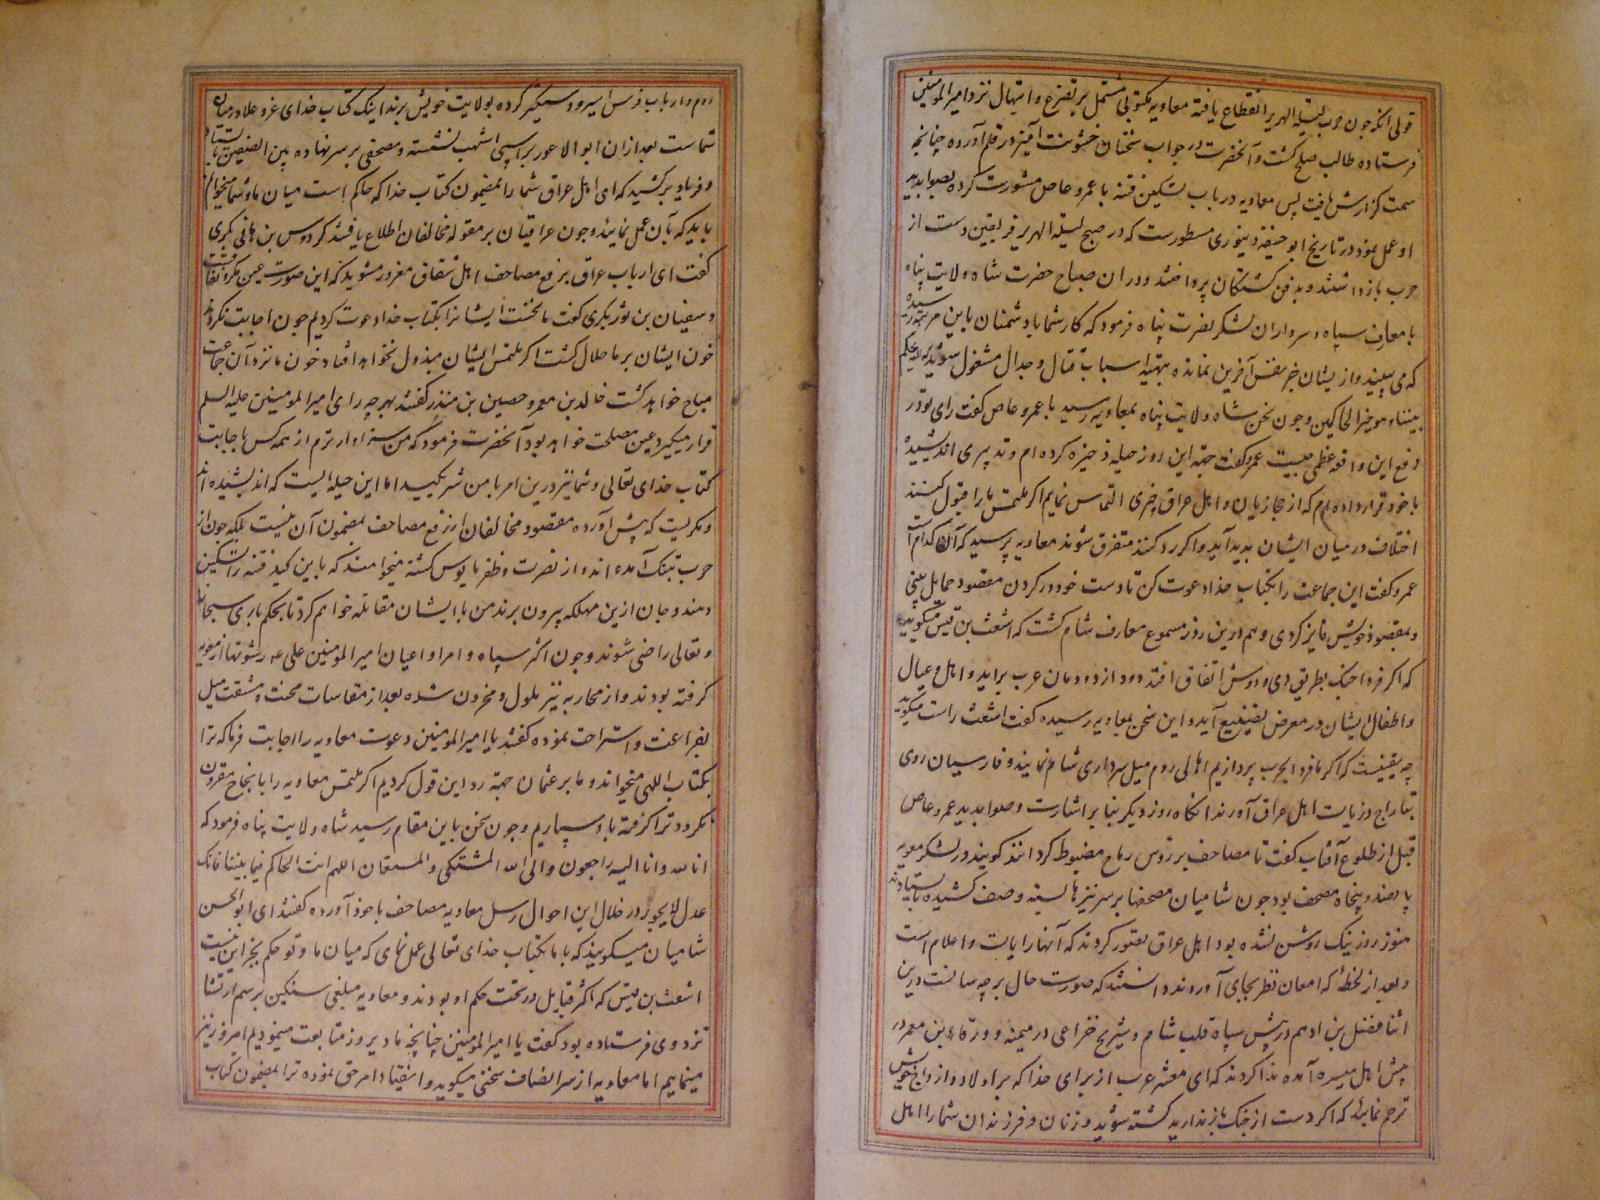 قولی آنکه چون حرب لیلة الهریر انقطاع یافته معاویه مکتوبی مشتمل بر تضرع و ابتهال نزد امیر المومنین
فرستاده طالب صلح گشت و آنحضرت در جواب سخنان خشونت آمیز در قلم آورده چنانچه
سمت گزارش یافت پس معاویه در باب تسکین فتنه با عمرو عاص مشورت کرده بصوابدید
او عمل نمود در تاریخ ابو حنیفه دینوری مسطورست که در صبح لیلة الهریر فریقین دست از
حرب بازداشتند و بدفن کشتگان پرداختند و در ان صباح حضرت شاه ولایت پناه
با معارف سپاه و سرداران لشکر نصرت پناه فرمود که کار شما با دشمنان باین مرتبه رسیده
که می بینید و از یشان جز نفس آخرین نمانده بتهیه اسباب قتال و جدال مشغول شوید
بیننا و هو خیر الحاکمین و چون سخن شاه ولایت پناه بمعاویه رسید با عمرو عاص گفت رای تو در
دفع این واقعه عظمی چیست عمرو گفت جهة این روز حیله ذخیره کرده ام و تدبیری اندیشیده
با خود قرار داده ام که از حجازیان و اهل عراق چیزی التماس نمایم اگر ملتمس ما را قبول کنند
اختلاف در میان ایشان پدید آید و اگر رد کنند متفرق شوند معاویه پرسید که آن کدام
عمرو گفت این جماعت را بکتاب خدا دعوت کن تا دست خود در گردن مقصود حمایل بینی
و بمقصود خویش فایز گردی و هم درین روز مسموع معارف شام گشت که اشعث بن قیس میگوید
که اگر فردا جنگ بطریق دی و دوش اتفاق افتد دود از دودمان عرب براید و اهل و عیال
و اطفال ایشان در معرض تضییع آید و این سخن بمعاویه رسیده گفت اشعث راست میگوید
چه یقینست که اگر ما فردا بحرب پردازیم اهالی روم میل سرداری شام نمایند و فارسیان روی
بتاراج ذریات اهل عراق آورند انگاه روز دیگر بنا بر اشارت و صوابدید عمرو عاص
قبل از طلوع آفتاب گفت تا مصاحف بر رؤس رماح مضبوط گردانند گویند در لشکر معویه
پانصد و پنجاه مصحف بود چون شامیان مصحفها بر سر نیزها بسته و صف کشیده بایستادند
هنوز روز نیک روشن نشده بود اهل عراق تصور کردند که آنها رایات و اعلام است
و بعد از لحظه که امعان نظر بجای آوردند دانستند که صورت حال بر چه سانست درین
اثنا فضل بن ادهم در پیش سپاه قلب شام و شریح خزاعی در میمنه و ورقاء بن معمر در
پیش اهل میسره آمده ندا کردند که ای معشر عرب از برای خدا که بر اولاد و ازواج خویش
ترحم نمایید که اگر دست از جنگ باز ندارید کشته شوید و زنان و فرزندان شما را اهل
روم و ارباب فرس اسیر و دستگیر کرده بولایت خویش برند اینک کتاب خدای عز و علا در میان
شماست بعد ازان ابو الاعور بر اسپی اشهب نشسته و مصحفی بر سر نهاده بین الصفین بایستاد
و فریاد برکشید که ای اهل عراق شما را بمضمون کتاب خدا که حاکم است میان ما و شما میخوانم
باید که بآن عمل نمایید و چون عراقیان بر مقوله مخالفان اطلاع یافتند کردوس بن هانی بکری
گفت ای ارباب عراق برفع مصاحف اهل شقاق مغرور مشوید که این صورت عین مکر و نفاقست
و سفیان بن ثور بکری گفت ما نخست ایشانرا بکتاب خدا دعوت کردیم چون اجابت نکردند
خون ایشان بر ما حلال گشت اگر ملتمس ایشان مبذول نخواهد افتاد خون ما نزد آن جماعت
مباح خواهد گشت خالد بن معمر و حصین بن منذر گفتند بهر چه رای امیر المومنین علیه السلم
قرار میگیرد عین مصلحت خواهد بود آنحضرت فرمود که من سزاوارترم از همه کس باجابت
کتاب خدای تعالی و شما نیز درین امر با من شریکید اما این حیله ایست که اندیشیده اند
و مکریست که پیش آورده مقصود مخالفان از رفع مصاحف بمضمون آن نیست بلکه چون از
حرب بتنگ آمده اند و از نصرت و ظفر مایوس گشته میخواهند که باین کید فتنه را تسکین
دهند و جان ازین مهلکه بیرون برند من با ایشان مقاتله خواهم کرد تا بحکم باری سبحانه
و تعالی راضی شوند و چون اکثر سپاه و امرا و اعیان امیر المومنین علی عم رشوتها از معویه
گرفته بودند و از محاربه نیز ملول و محزون شده بعد از مقاسات محنت و مشقت میل
بفراغت و استراحت نموده گفتند یا امیر المومنین دعوت معاویه را اجابت فرما که ترا
بکتاب اللهی میخواند و ما بر عثمان جهة رد این قول کردیم اگر ملتمس معاویه را بانجاح مقرون
نگردد ترا گرفته باو سپاریم و چون سخن باین مقام رسید شاه ولایت پناه فرمود که
انا لله و انا الیه راجعون و الی الله المشتکی و المستعان اللهم انت الحاکم فیما بیننا فانک
عدل لا یجور در خلال این احوال رسل معاویه مصاحف با خود آورده گفتند ای ابو الحسن
شامیان میگویند که با ما بکتاب خدای تعالی عمل نمای که میان ما و تو حکم بجز این نیست
اشعث بن قیس که اکثر قبایل در تحت حکم او بودند و معاویه مبلغی سنگین برسم ارتشا
نزد وی فرستاده بود گفت یا امیر المومنین چنانچه ما دیروز متابعت مینمودیم امروز نیز
مینماییم اما معاویه از سر انصاف سخنی میگوید و انقیاد امر حق نموده ترا بمضمون کتاب